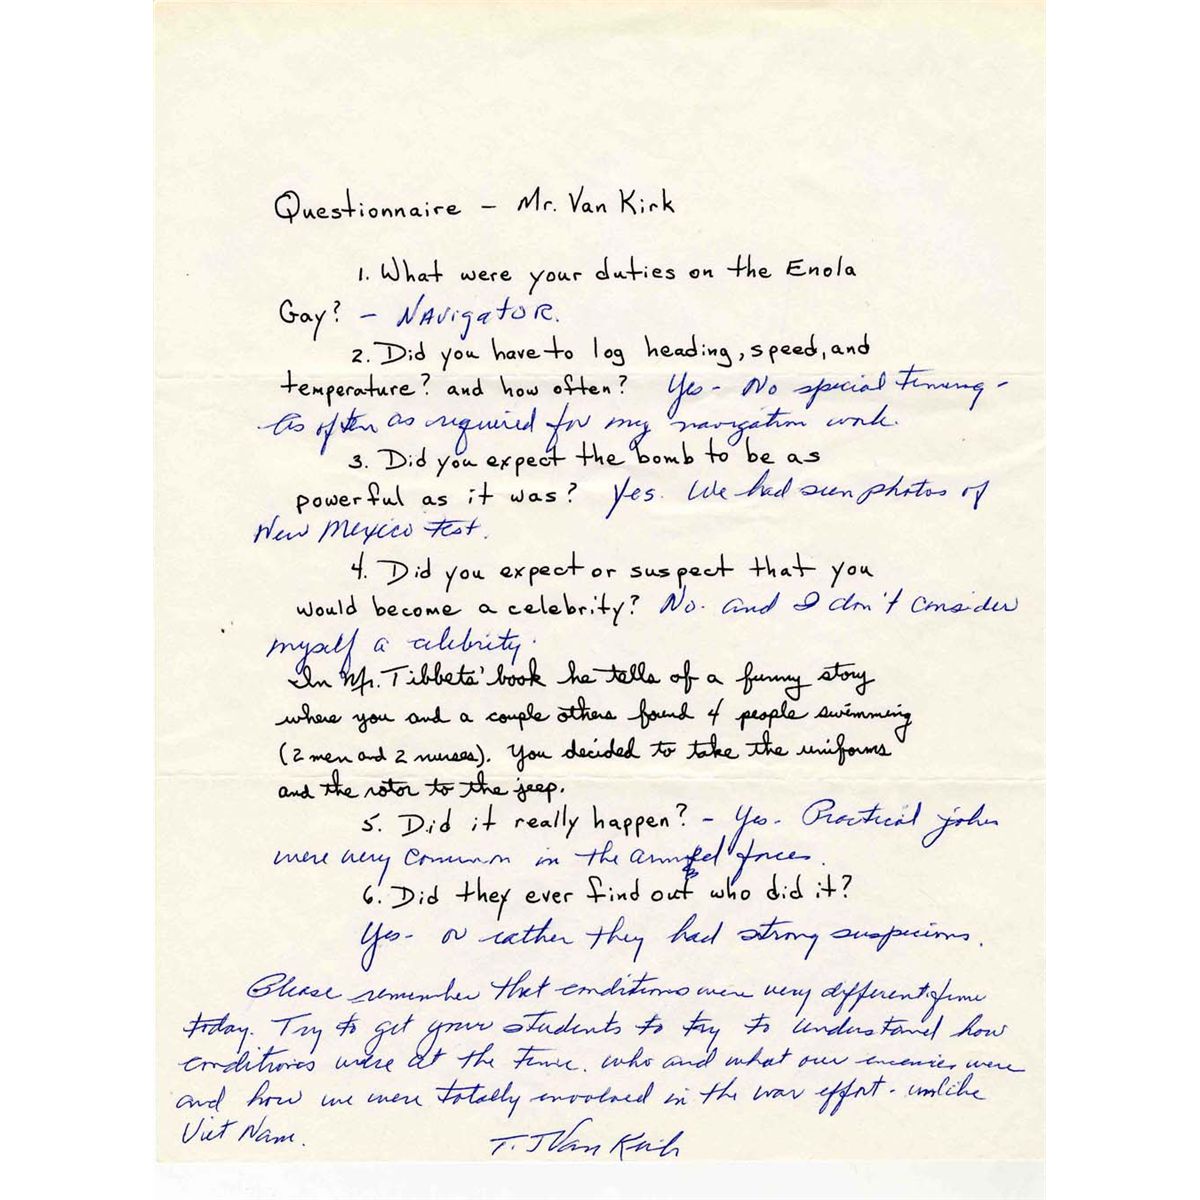 Questionnaire - Mr. Van Kirk
1. What were your duties on the Enola
Gay? - Navigator.
2. Did you have to log heading, speed, and
temperature? and how often? Yes - No special timing -
As often as required for my navigation work.
3. Did you expect the bomb to be as
powerful as it was? Yes. We had seen photos of
New Mexico test.
4. Did you expect or suspect that you
would become a celebrity? No. and I don't consider
myself a celebrity.
In Mr. Tibbets' book he tells of a funny story
where you and a couple others found 4 people swimming
(2 men and 2 nurses). You decided to take the uniforms
and the rotor to the jeep.
5. Did it really happen? - Yes - Practical jokes
were very common in the armed forces.
6. Did they ever find out who did it?
Yes - or rather they had strong suspicions.
Please remember that conditions were very different from
today. Try to get your students to try to understand how
conditions were at the time. who and what our enemies were
and how we were totally involved in the war effort - unlike
Viet Nam.
T. J Van Kirk